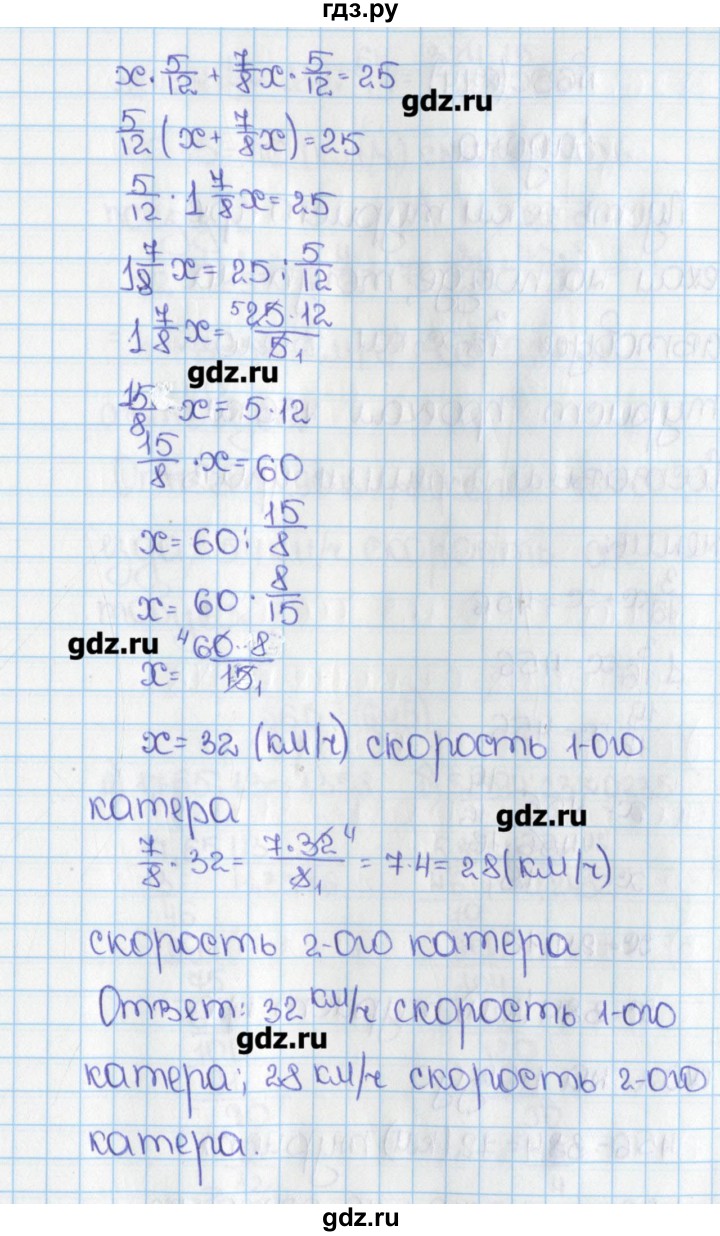 гдз.ру
x · 5/12 + 7/8 x · 5/12 = 25
gdz.ru
5/12 (x + 7/8 x) = 25
5/12 · 1 7/8 x = 25
1 7/8 x = 25 : 5/12
1 7/8 x = ⁵25·12/5₁
gdz.ru
15/8 · x = 5·12
15/8 · x = 60
x = 60 : 15/8
x = 60 · 8/15
gdz.ru
x = ⁴60·8/15₁
x = 32 (км/ч) скорость 1-ого
катера
gdz.ru
7/8 · 32 = 7·32⁴/8₁ = 7·4 = 28 (км/ч)
скорость 2-ого катера
Ответ: 32 км/ч скорость 1-ого
gdz.ru
катера; 28 км/ч скорость 2-ого
катера.
gdz.ru